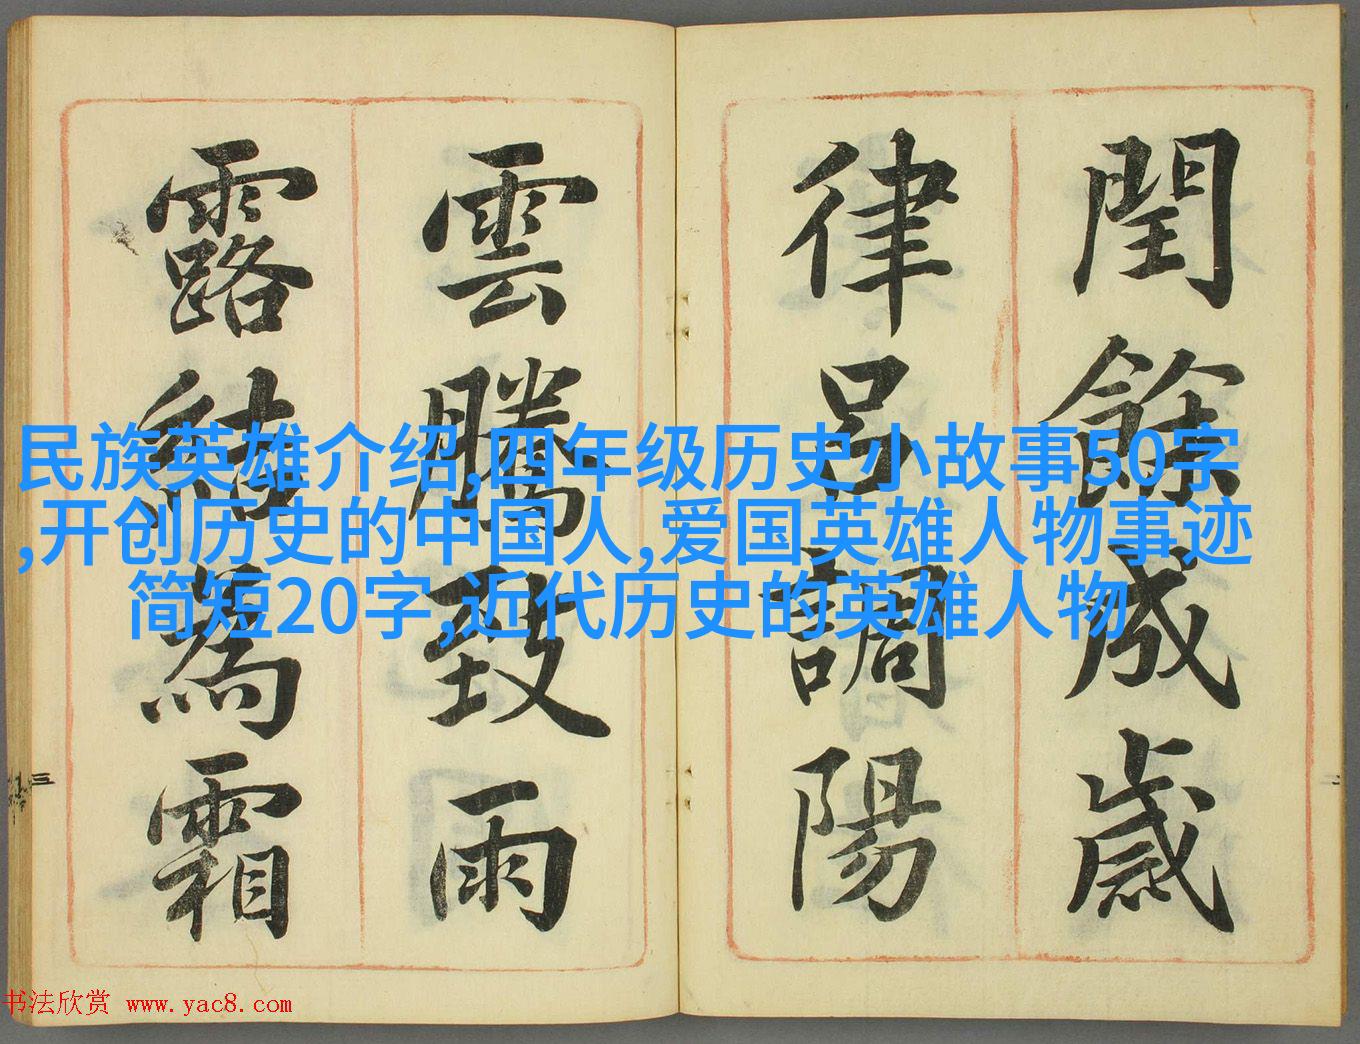 閏餘成歲
律吕調陽
雲騰致雨
露結為霜
民族英雄介绍,四年级历史小故事50字
,开创历史的中国人,爱国英雄人物事迹
简短20字,近代历史的英雄人物
三
二
书法欣赏 www.yac8.com